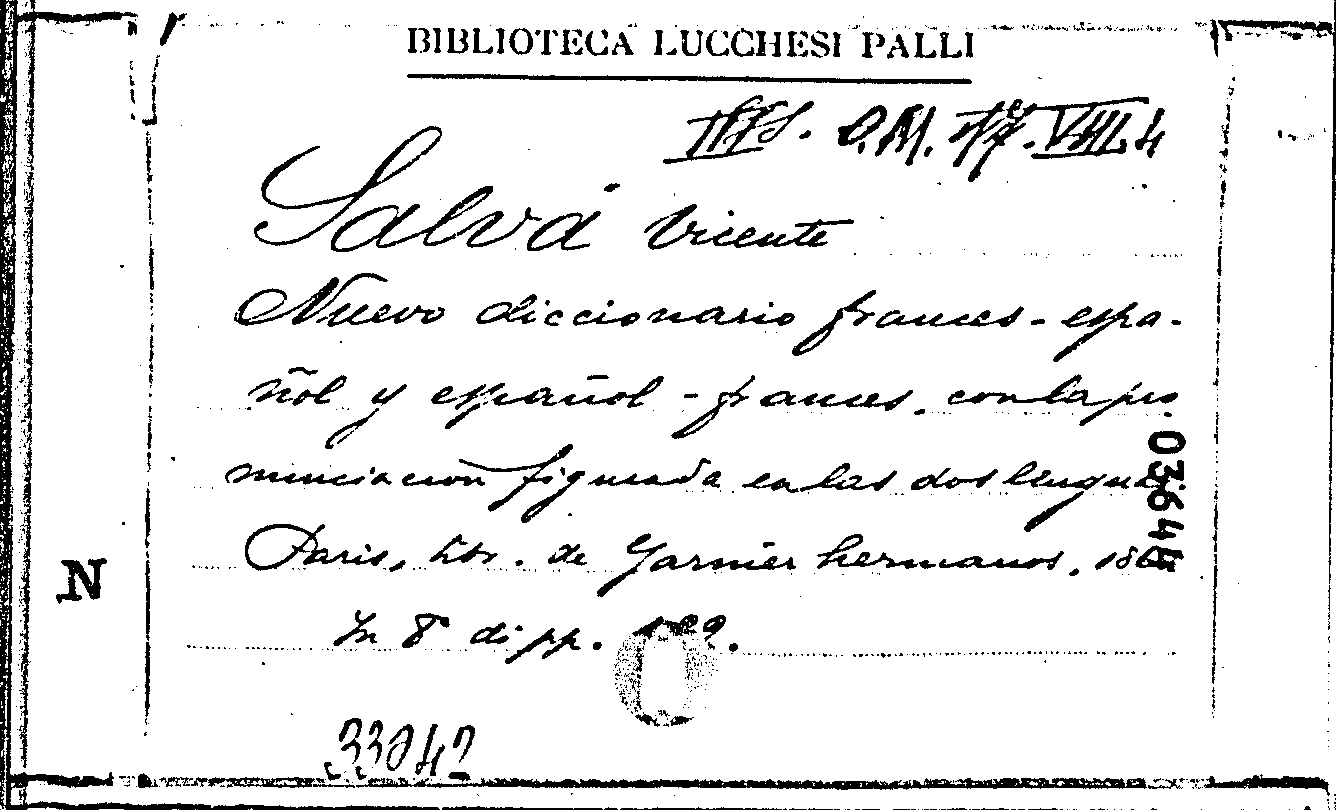 BIBLIOTECA LUCCHESI PALLI
VIII. 4
Salvá Vicente
Nuevo diccionario frances-espa-
ñol y español-frances, con la pro
nunciacion figurada en las dos lenguas.
Paris, libr. de Garnier hermanos,
03644
N
In 8° di pp.
33042